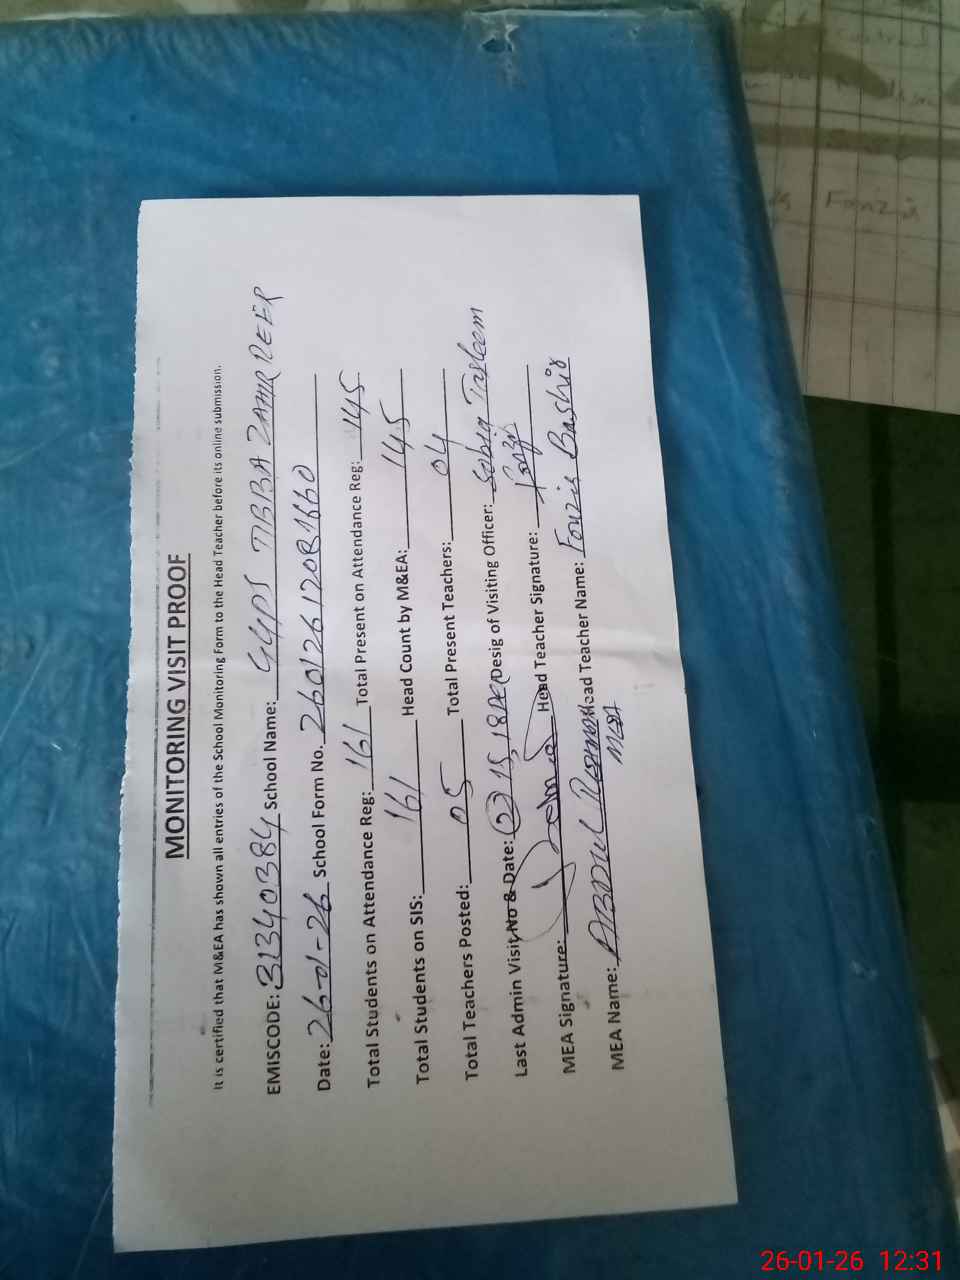 MONITORING VISIT PROOF
It is certified that M&EA has shown all entries of the School Monitoring Form to the Head Teacher before its online submission.
EMISCODE: 31340384 School Name: GGPS TIBBA ZAHIR PEER
Date: 26-01-26 School Form No. 260126120B1660
Total Students on Attendance Reg: 161 Total Present on Attendance Reg: 145
Total Students on SIS: 161 Head Count by M&EA: 145
Total Teachers Posted: 05 Total Present Teachers: 04
Last Admin Visit No & Date: 02 15, 18 DEC Desig of Visiting Officer: Sobia Tasleem
MEA Signature: Head Teacher Signature: Fouzia
MEA Name: ABDUL Head Teacher Name: Fouzia Bashir
MEA
Fouzia
26-01-26 12:31